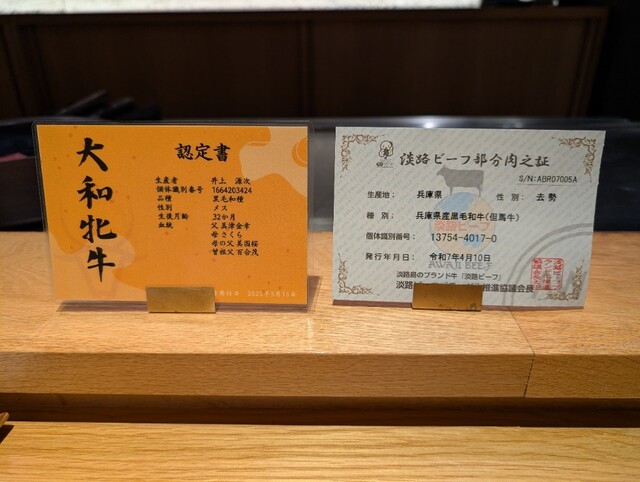 大和牝牛
認定書
生産者 井上 源次
個体識別番号 1664203424
品種 黒毛和種
性別 メス
生後月齢 32か月
血統 父 美津金幸
母 さくら
母の父 美国桜
曽祖父 百合茂
淡路ビーフ部分肉之証
S/N:ABR07005A
生産地: 兵庫県 性別: 去勢
種別: 兵庫県産黒毛和牛(但馬牛)
淡路ビーフ
個体識別番号: 13754-4017-0
発行年月日: 令和7年4月10日
AWAJI BEEF
淡路島のブランド牛「淡路ビーフ」
淡路ビーフ
推進協議会長